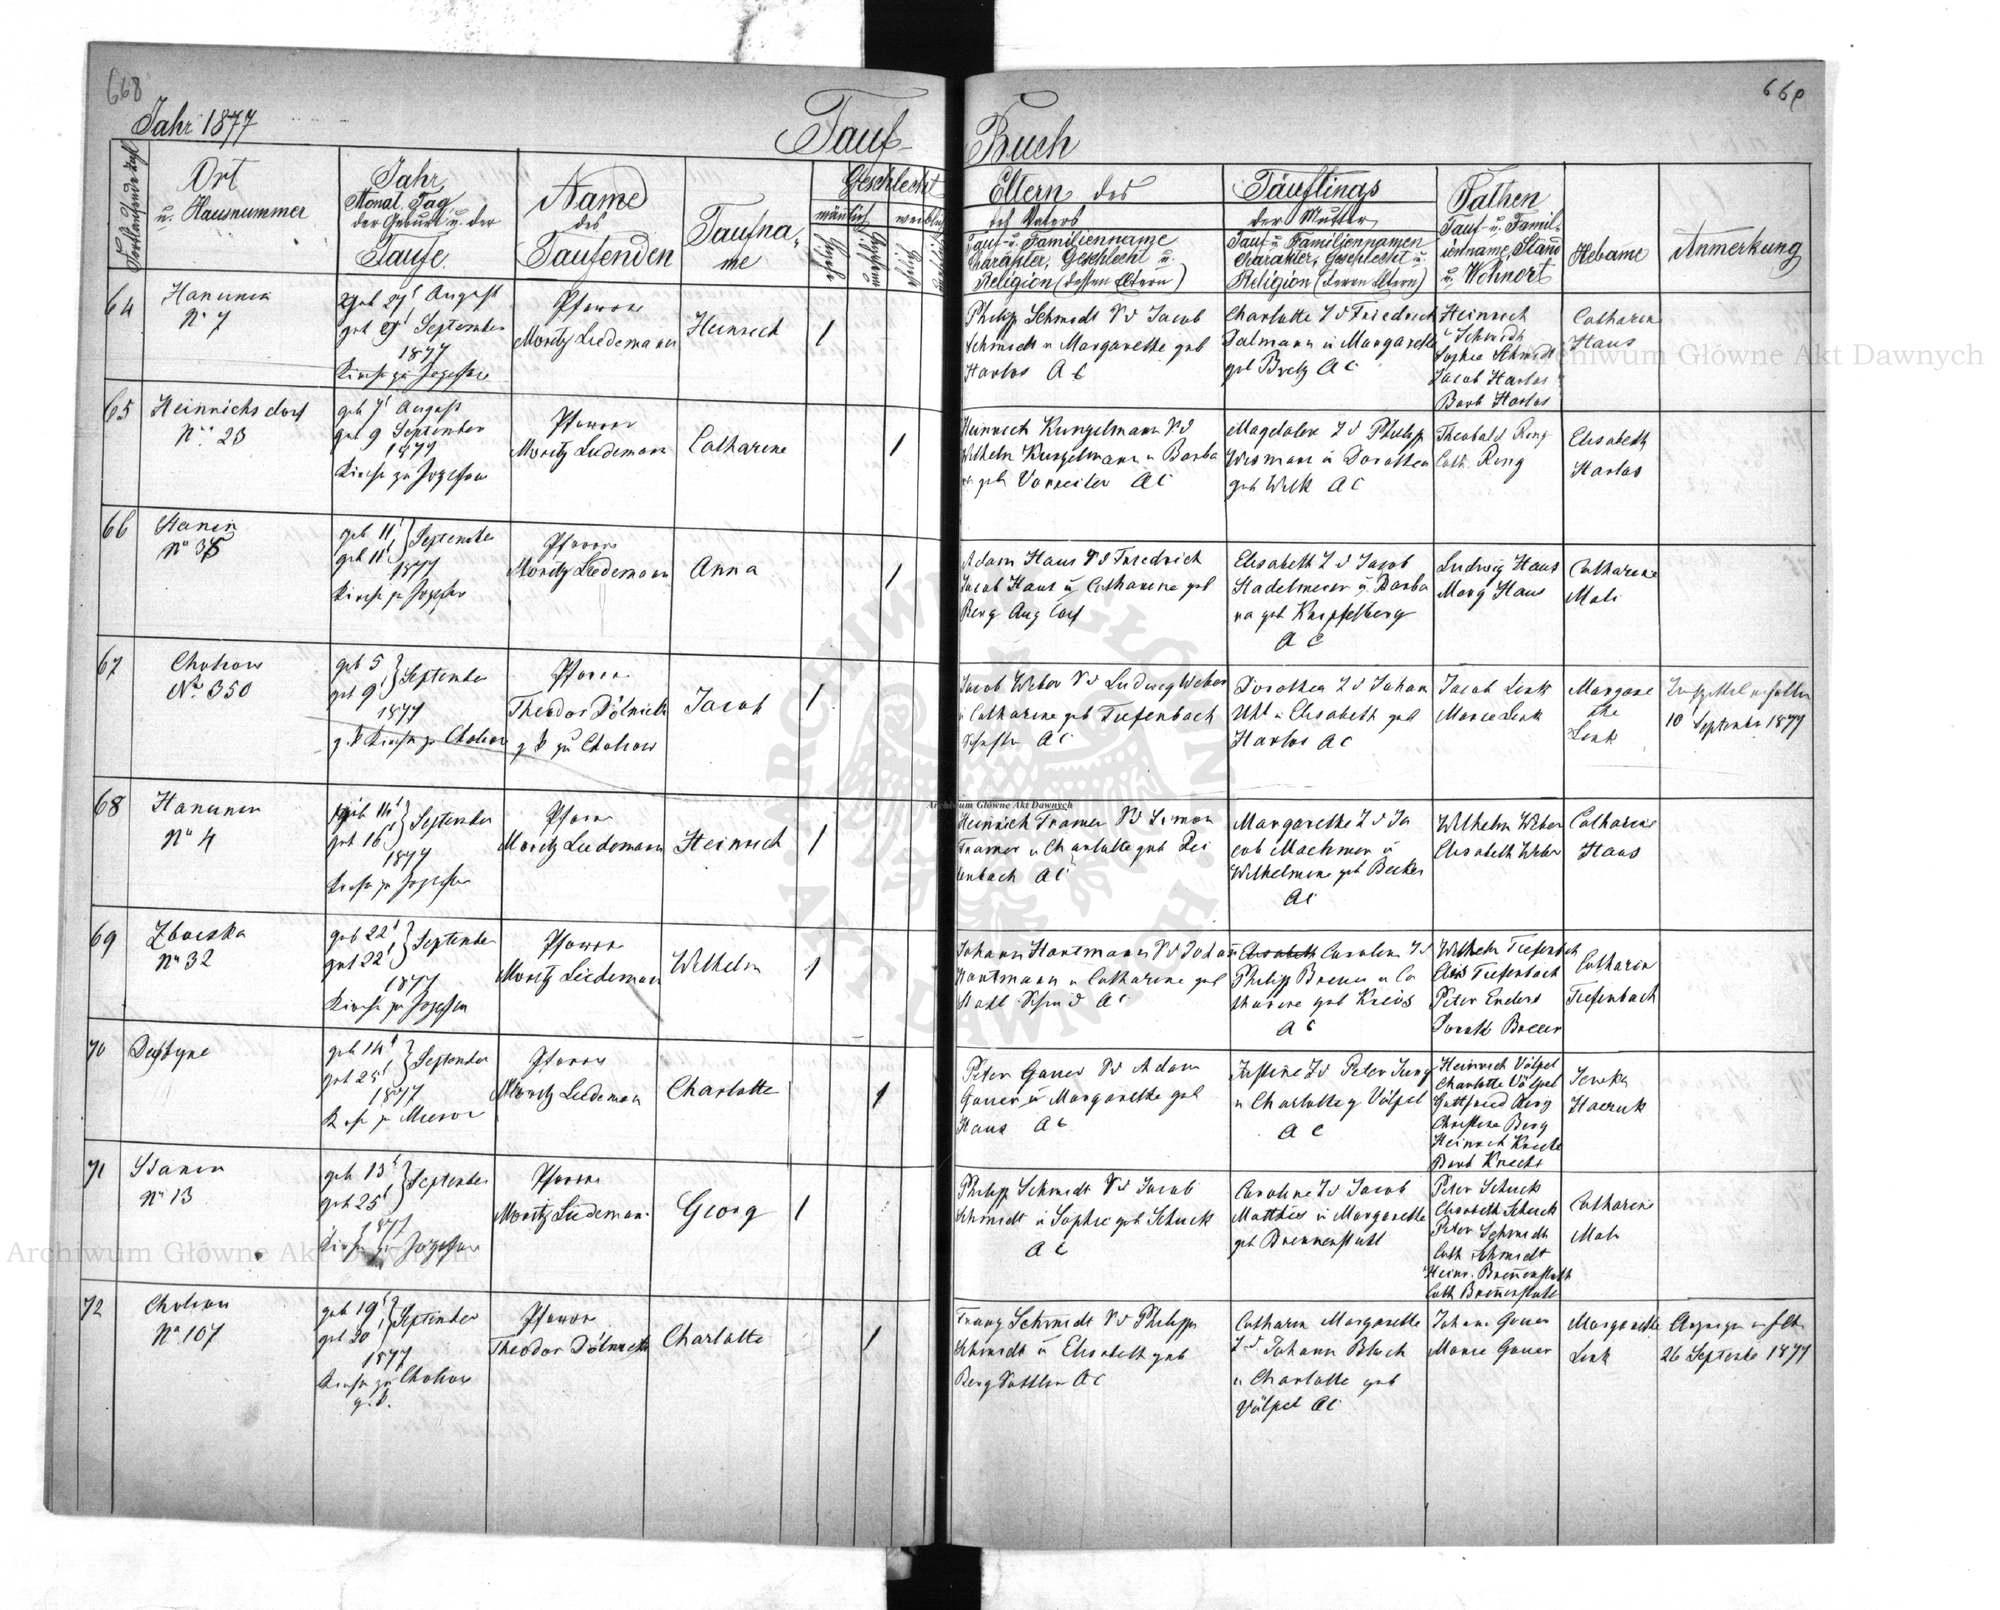 668
Jahr 1877
Tauf-
Fortlaufende Zahl
Ort
u. Hausnummer
Jahr,
Monat, Tag
der Geburt u. der
Taufe.
Name
des
Taufenden
Taufna-
me
Geschlecht
männlich
weiblich
64
Hanunin
N. 7
geb 27t August
get 9t September
1877
Kirche zu Josefow
Pfarrer
Moritz Liedemann
Heinrich
1
65
Heinrichsdorf
N. 23
geb 7t August
get 9 September
1877
Kirche zu Josefow
Pfarrer
Moritz Liedemann
Catharine
1
66
Stanin
geb 11t
get 11t
September
1877
Kirche zu Josefow
Pfarrer
Moritz Liedemann
Anna
1
67
Cholojow
No. 350
geb 5
get 9t
September
1877
g. k Kirche zu Cholojow
Pfarrer
Theodor Dólnicki
g k zu Cholojow
Jacob
1
68
Hanunin
No 4
geb 14t
get 16t
September
1877
Kirche zu Josefow
Pfarrer
Moritz Liedemann
Heinrich
1
69
No 32
geb 22t
get 22t
September
1877
Kirche zu Josefow
Pfarrer
Moritz Liedemann
Wilhelm
1
70
geb 14t
get 25t
September
1877
Pfarrer
Moritz Liedemann
Charlotte
1
71
Stanin
No 13
geb 13t
get 25t
September
1877
Kirche zu Josefow
Pfarrer
Moritz Liedemann
Georg
1
72
Cholojow
No 107
geb 19t
get 20
September
1877
Kirche zu Cholojow
g. k.
Pfarrer
Theodor Dólnicki
Charlotte
1
669
Buch
Eltern des
Täuflings
des Vaters
Tauf- u. Familienname
Charakter, Geschlecht u.
Religion (dessen Eltern)
der Mutter
Tauf- u. Familiennamen
Charakter, Geschlecht u.
Religion (deren Eltern)
Pathen
Tauf- u. Famil-
ienname, Stand
u. Wohnort
Hebame
Anmerkung
Philipp Schmidt S d Jacob
Schmidt u Margarethe geb
Harlos A C
Charlotte T d Friedrich
Dalmann u Margarethe
geb Bretz A C
Heinrich
Schmidt
Sophie Schmidt
Jacob Harlos
Barb Harlos
Catharine
Haus
Heinrich Kunzelmann S d
Wilhelm Kunzelmann u Barba
ra geb AC
Magdalene T d Philipp
Wismann u Dorothea
geb Wilk AC
Theobald Ring
Cath. Ring
Elisabeth
Harlos
Adam Haus S d Friedrich
Jacob Haus u Catharine geb
Berg Aug Conf
Elisabeth T d Jacob
Stadelmeier u. Barba
ra geb Knipfelberg
A C
Ludwig Haus
Marg Haus
Catharine
Mali
Jacob Weber S d Ludwig Weber
u Catharine geb Tiefenbach
AC
Dorothea T d Johan
Uhl u Elisabeth geb
Harlos AC
Jacob Link
Marie Link
Margare
the
Link
10 September 1877
Heinrich Tramer S d Simon
Tramer u Charlotte geb Dei
enbach AC
Margarethe T d Ja
cob Machmer u
Wilhelmine geb Becker
AC
Wilhelm Weber
Elisabeth Weber
Catharine
Haus
Johann Hartmann S d Johann
Hartmann u Catharine geb
AC
Elisabeth Caroline T d
Philipp Breuer u Ca
tharine geb Kreis
A C
Wilhelm Tiefenbach
Elis Tiefenbach
Peter Enders
Doroth Breuer
Catharin
Tiefenbach
Peter Gauer S d Adam
Gauer u Margarethe geb
Haus AC
Justine T d Peter Jung
u Charlotte g Völpel
A C
Heinrich Völpel
Charlotte Völpel
Gottfried Berg
Christine Berg
Heinrich Knecht
Barb Knecht
Philipp Schmidt S d Jacob
Schmidt u Sophie geb Schuck
A C
Caroline T d Jacob
Matthies u Margarethe
geb Brennenstuhl
Peter Schuck
Elisabeth Schuck
Peter Schmidt
Cath Schmidt
Heinr. Brennenstuhl
Cath Brennenstuhl
Catharine
Mali
Franz Schmidt S d Philipp
Schmidt u Elisabeth geb
Berg Sattler AC
Catharin Margarethe
T d Johann Bloch
u Charlotte geb
Völpel AC
Johann Gauer
Marie Gauer
Margarethe
Link
26 September 1877
Archiwum Główne Akt Dawnych
Archiwum Główne Akt Dawnych
Archiwum Główne Akt Dawnych
ARCHIWUM GŁÓWNE AKT DAWNYCH